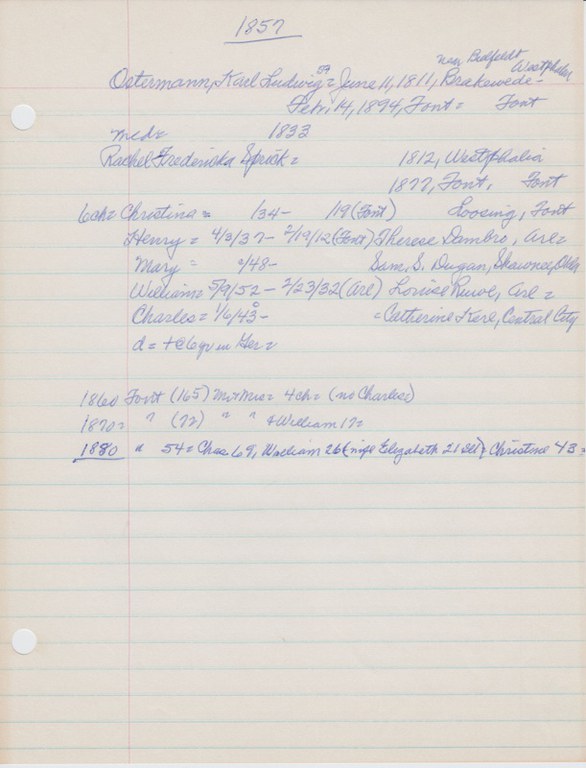 1857
near Bielfeldt
Westphalia
Ostermann, Karl Ludwig = June 11, 1811, Brakewede -
Feb. 14, 1894, Font = Font
med = 1833
Rachel Frederiska Sprick = 1812, Westphalia
1877, Font, Font
6ch = Christina = /34 - /19 (Font) Loosing, Font
Henry = 4/3/37 - 2/19/12 (Font) Therese Dambro, Arl =
Mary = /48 - Sam. S. Dugan, Shawnee, Okla
William = 5/9/52 - 2/23/32 (Arl) Louise Ruwe, Arl =
Charles = 1/6/43 - = Catherine Kerl, Central City
d = + @ 6 yr in Ger =
1860 Font (165) Mr + Mrs = 4ch = (no Charles)
1870 = " (72) " " + William 17 =
1880 " 54 = Chas 69, William 26 (wife Elizabeth 21 Ill) Christine 43 =